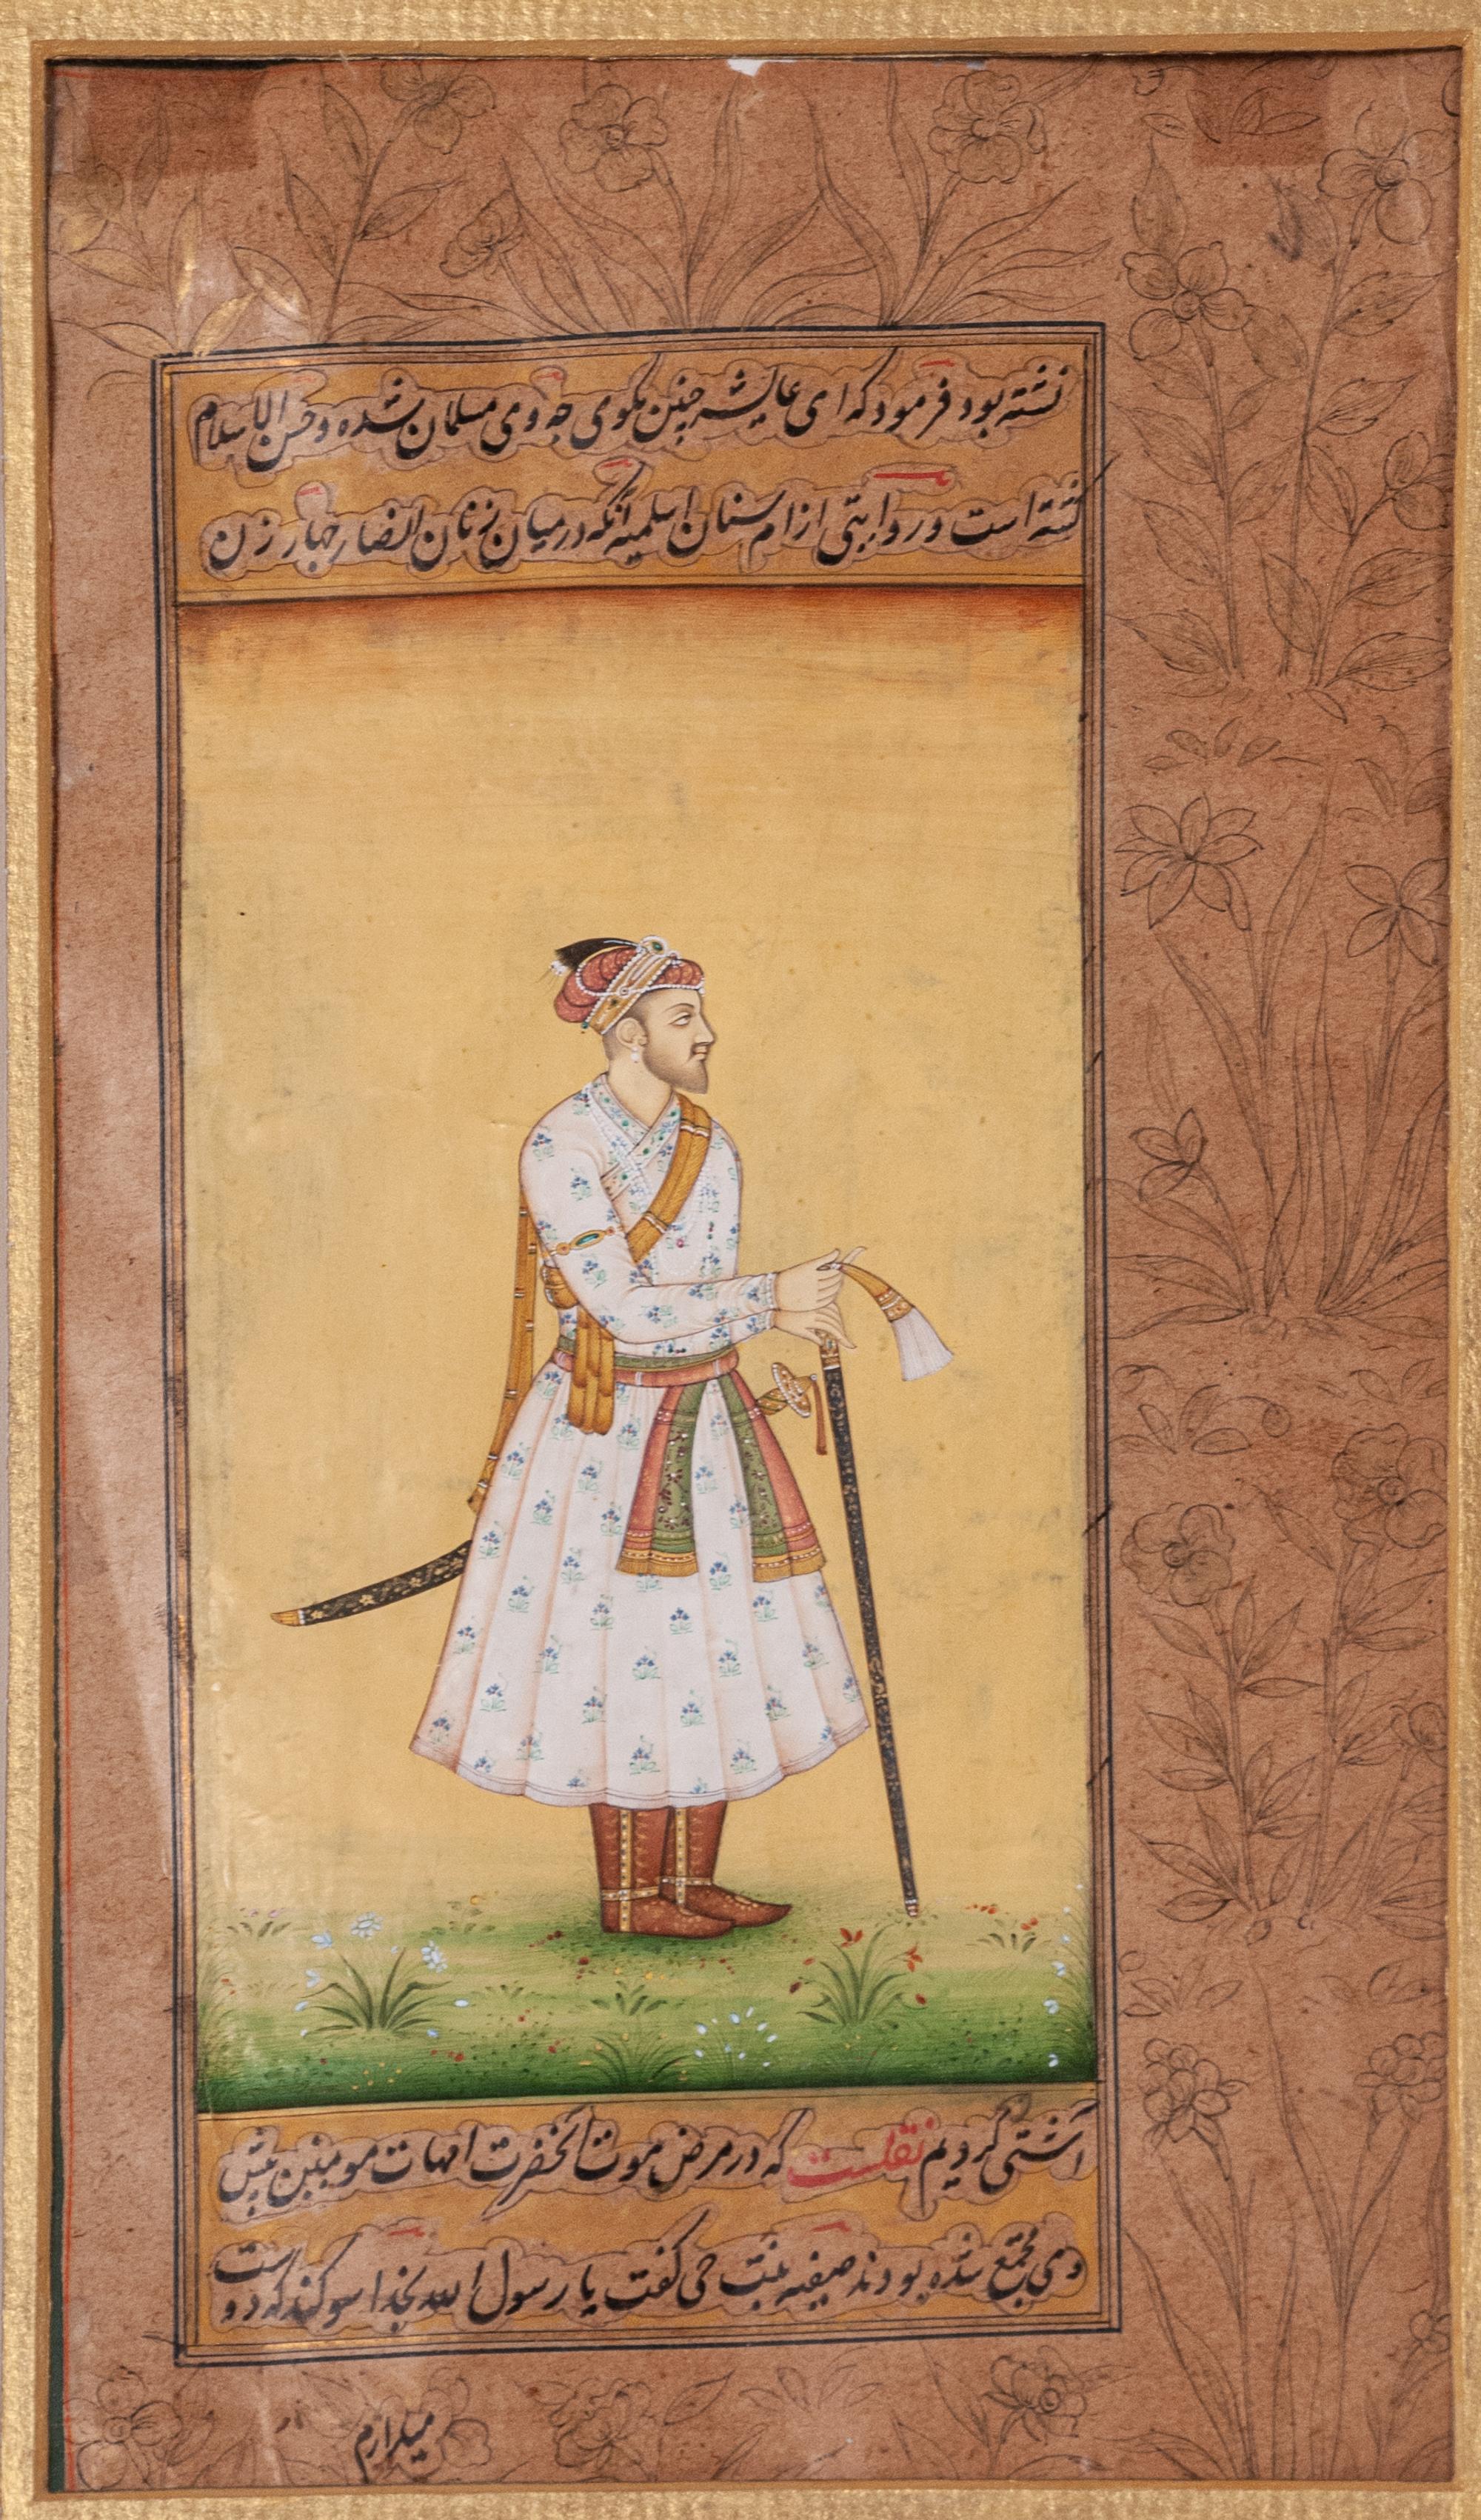 نشسته بود فرمود که ای عایشه چنین مگوی چه وی مسلمان شده و حسن الاسلام
گشته است و روایتی از ام سنان اسلمیه آنکه در میان زنان انصار چهار زن
آشتی کردیم نقلست که در مرض موت آنحضرت امهات مومنین پیش
وی مجتمع شده بودند صفیه بنت حی گفت یا رسول الله بخدا سوکند که دوست
میدارم